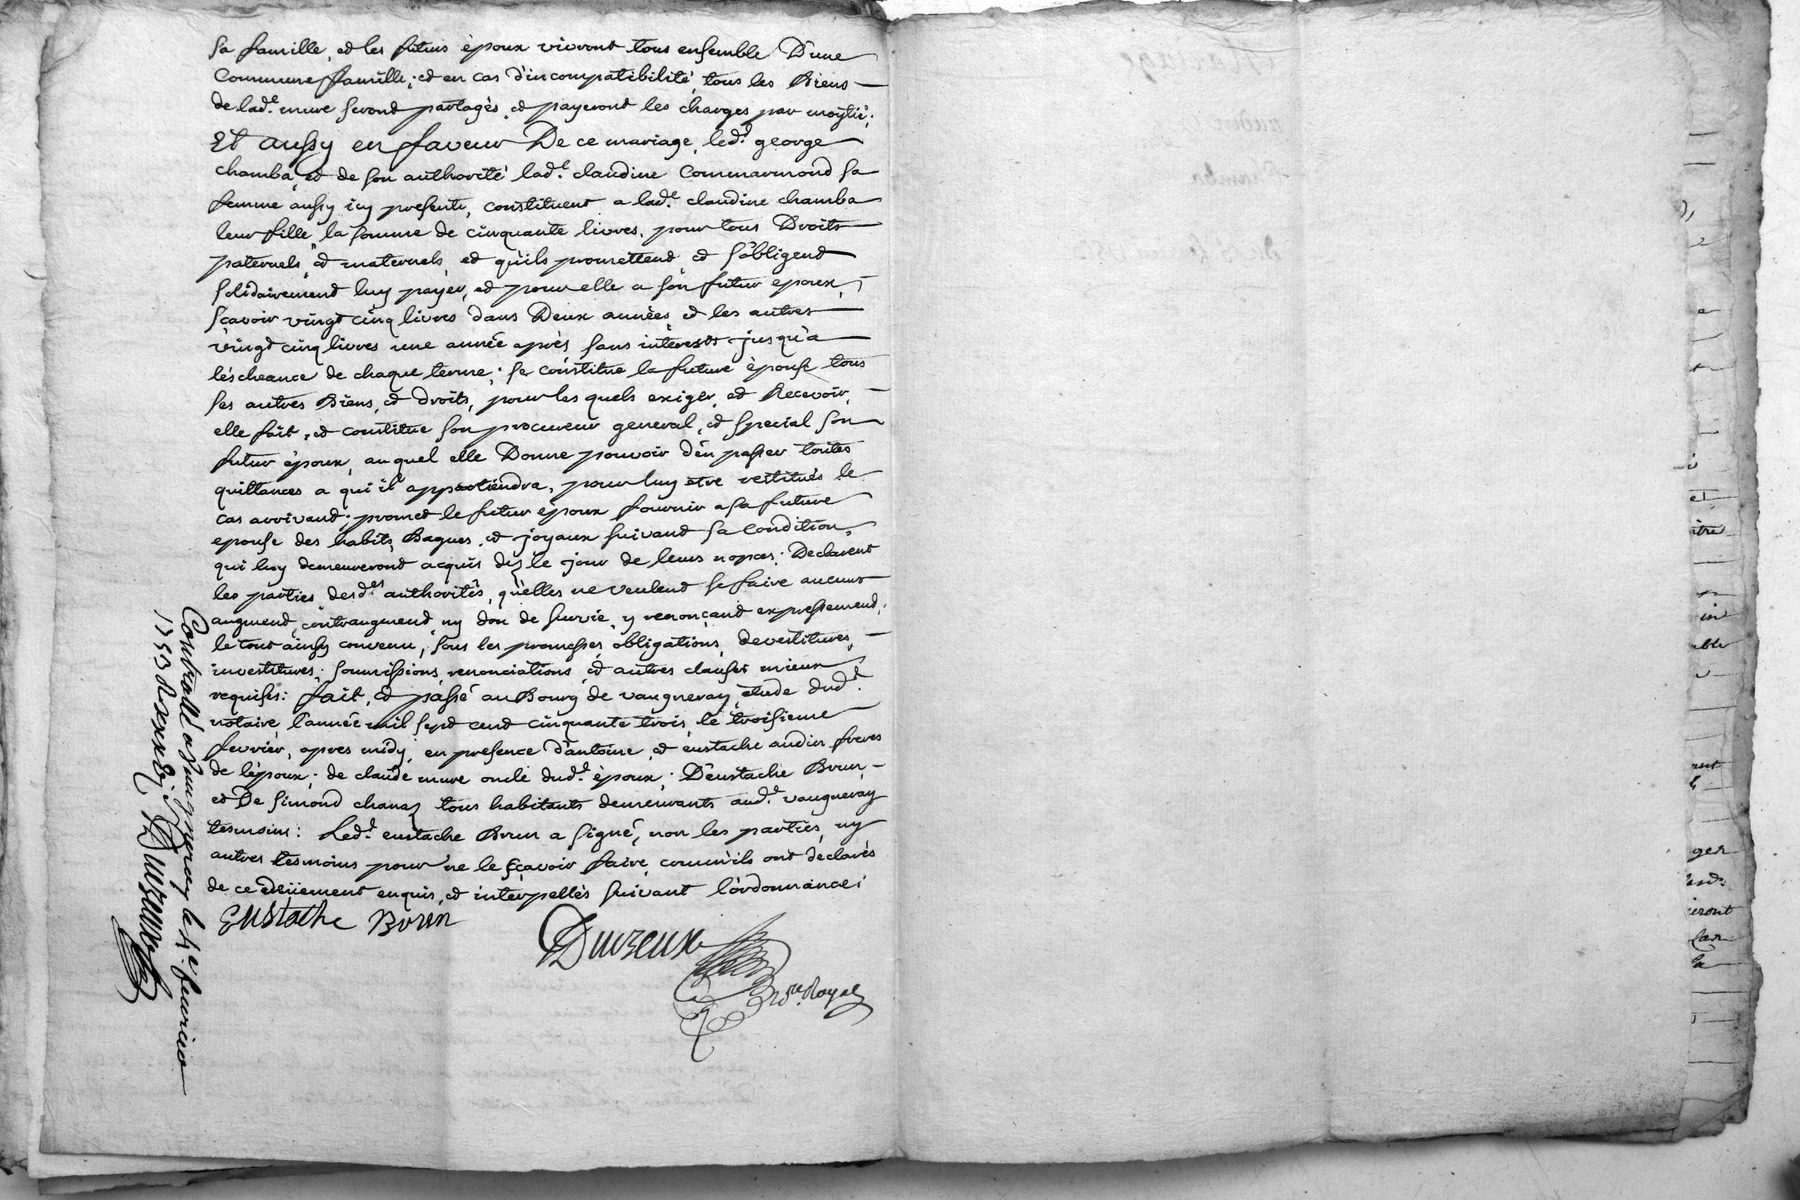 sa famille, et les futurs époux vivront tous ensemble D'une
Commune famille; et en cas d'incompatibilité, tous les Biens
de lad.e mure seront partagés, et payeront les charges par moytié;
Et aussy en faveur De ce mariage, led.t george
chamba, et de son authorité lad.e claudine Commarmond sa
femme aussy icy presente, constituent a lad.e claudine chamba
leur fille, la somme de cinquante livres, pour tous Droits
paternels, et maternels, et qu'ils promettend et s'obligend
solidairement luy payer, et pour elle a son futur epoux,
scavoir vingt cinq livres dans Deux années et les autres
vingt cinq livres une année après sans intérests jusqu'a
léscheance de chaque terme; se constitue la future épouse tous
ses autres Biens, et droits, pour les quels exiger, et Recevoir,
elle fait, et constitue son procureur general, et special son
futur époux, auquel elle Donne pouvoir d'en passer toutes
quittances a qui il appartiendra, pour luy etre restitués le
cas arrivand; promet le futur epoux fournir a sa future
epouse des habits, Bagues, et joyaux suivand sa Condition,
qui luy demeurerond acquis dez le jour de leurs nopces; Declarent
les parties desd.es authorités, qu'elles ne veulend se faire aucuns
augmend, contraugmend ny don de survie, y renonçand expressemend;
le tout ainsy convenu, sous les promesses, obligations, devestitures,
investitures, soumissions, renonciations, et autres clauses mieux
requises: fait, et passé au Bourg de vaugneray, étude dud.t
notaire, l'année mil sept cend cinquante trois, le troisieme
fevrier, apres midy, en presence d'antoine, et eustache audin freres
de l'époux; de claude mure oncle dud.t époux; D'eustache Brun,
et De simond chanaz tous habitants demeurants aud.t vaugneray
tesmoins: Led.t eustache Brun a signé, non les parties, ny
autres tesmoins pour ne le sçavoir faire, comm'ils ont déclarés
de ce enquis, et interpellés suivant l'ordonnance;
Eustache Brun
Duvzeux
n.re Royal
Controllé a Vaugneray le 4.e feurier
1753